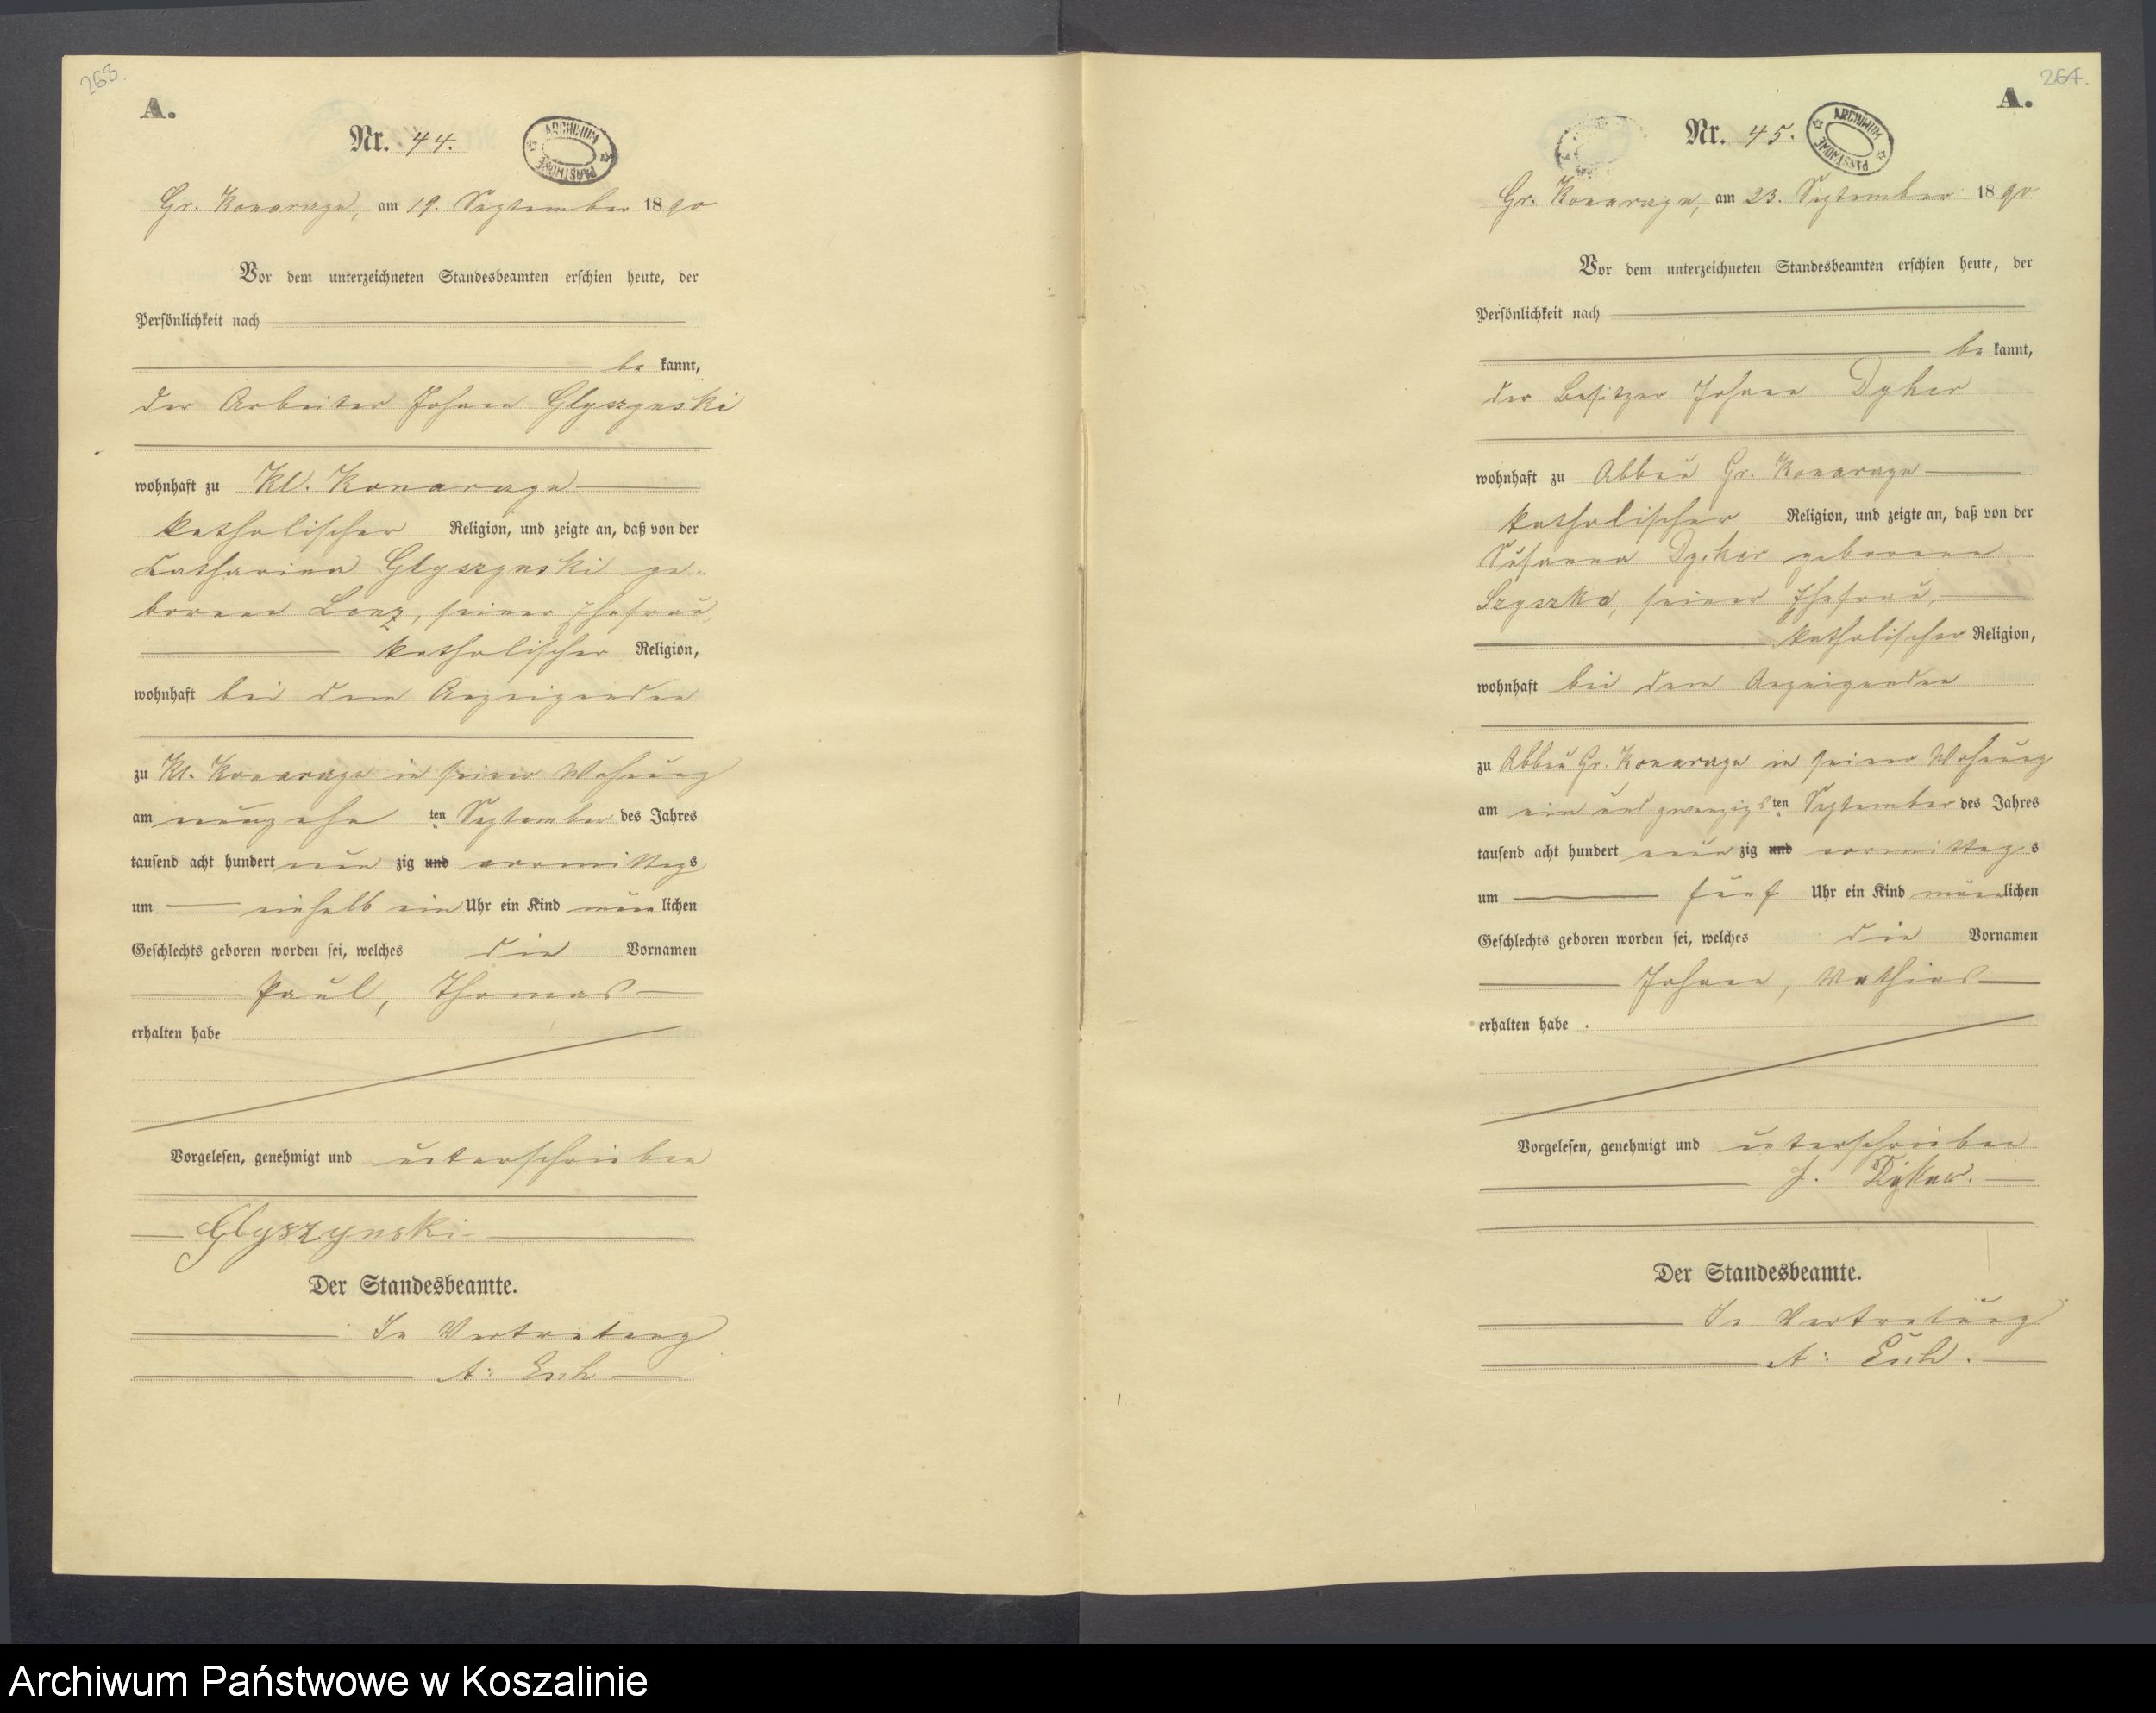 263.
A.
Nr. 44.
ARCHIWUM PAŃSTWOWE
Gr. Konarzyn, am 19. September 1890
Vor dem unterzeichneten Standesbeamten erschien heute, der
Persönlichkeit nach
be kannt,
der Arbeiter Johann Glyszynski
wohnhaft zu Kl. Konarzyn
katholischer Religion, und zeigte an, daß von der
Catharina Glyszynski ge-
borene Lonz, seiner Ehefrau,
katholischer Religion,
wohnhaft bei dem Anzeigenden
zu Kl. Konarzyn in seiner Wohnung
am neunzehn ten September des Jahres
tausend acht hundert neun zig und vormittags
um einhalb ein Uhr ein Kind männlichen
Geschlechts geboren worden sei, welches die Vornamen
Paul, Thomas
erhalten habe
Vorgelesen, genehmigt und unterschrieben
Glyszynski
Der Standesbeamte.
In Vertretung
A:
264.
A.
Nr. 45.
ARCHIWUM PAŃSTWOWE
Gr. Konarzyn, am 23. September 1890
Vor dem unterzeichneten Standesbeamten erschien heute, der
Persönlichkeit nach
be kannt,
der Besitzer Johann Dyker
wohnhaft zu Abbau Gr. Konarzyn
katholischer Religion, und zeigte an, daß von der
Susanna Dyker geborene
Szyszka, seiner Ehefrau,
katholischer Religion,
wohnhaft bei dem Anzeigenden
zu Abbau Gr. Konarzyn in seiner Wohnung
am ein und zwanzigsten September des Jahres
tausend acht hundert neun zig und vormittags
um fünf Uhr ein Kind männlichen
Geschlechts geboren worden sei, welches die Vornamen
Johann, Mathias
erhalten habe.
Vorgelesen, genehmigt und unterschrieben
J. Dyker.
Der Standesbeamte.
In Vertretung
A:
Archiwum Państwowe w Koszalinie